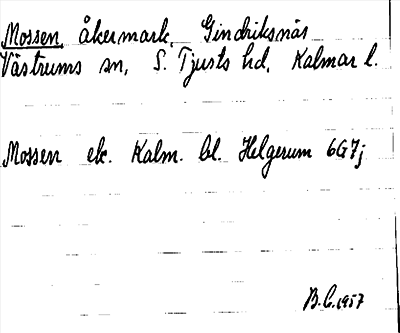 Mossen, åkermark, Gindriksnäs
Västrums sn, S. Tjusts hd, Kalmar l.
Mossen ek. Kalm. bl. Helgerum 6G7j
B.C. 1957